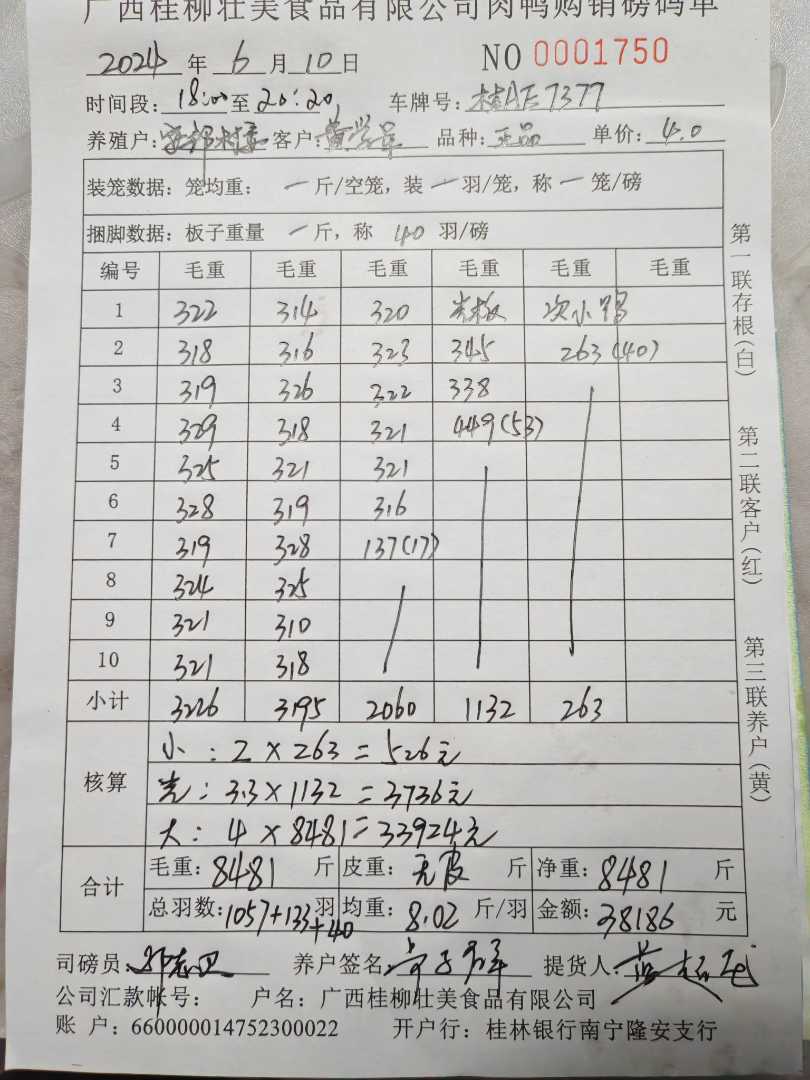 广西桂柳壮美食品有限公司肉鸭购销磅码单
2024 年 6 月 10 日 NO 0001750
时间段: 18:00 至 20:20 车牌号: 7377
养殖户: 村委 客户: 黄 品种: 正品 单价: 4.0
装笼数据: 笼均重: 一 斤/空笼, 装 一 羽/笼, 称 一 笼/磅
捆脚数据: 板子重量 一 斤, 称 40 羽/磅
编号 毛重 毛重 毛重 毛重 毛重 毛重
1 322 314 320 光板 次小鸭
2 318 316 323 345 263(40)
3 319 326 322 338
4 329 318 321 449(53)
5 325 321 321
6 328 319 316
7 319 328 137(17)
8 324 325
9 321 310
10 321 318
小计 3226 3195 2060 1132 263
核算
小: 2 × 263 = 526元
光: 3.3 × 1132 = 3736元
大: 4 × 8481 = 33924元
合计
毛重: 8481 斤 皮重: 无皮 斤 净重: 8481 斤
总羽数: 1057+133+40 羽 均重: 8.02 斤/羽 金额: 38186 元
司磅员: 养户签名: 提货人:
公司汇款帐号: 户名: 广西桂柳壮美食品有限公司
账 户: 660000014752300022 开户行: 桂林银行南宁隆安支行
第一联存根(白)
第二联客户(红)
第三联养户(黄)